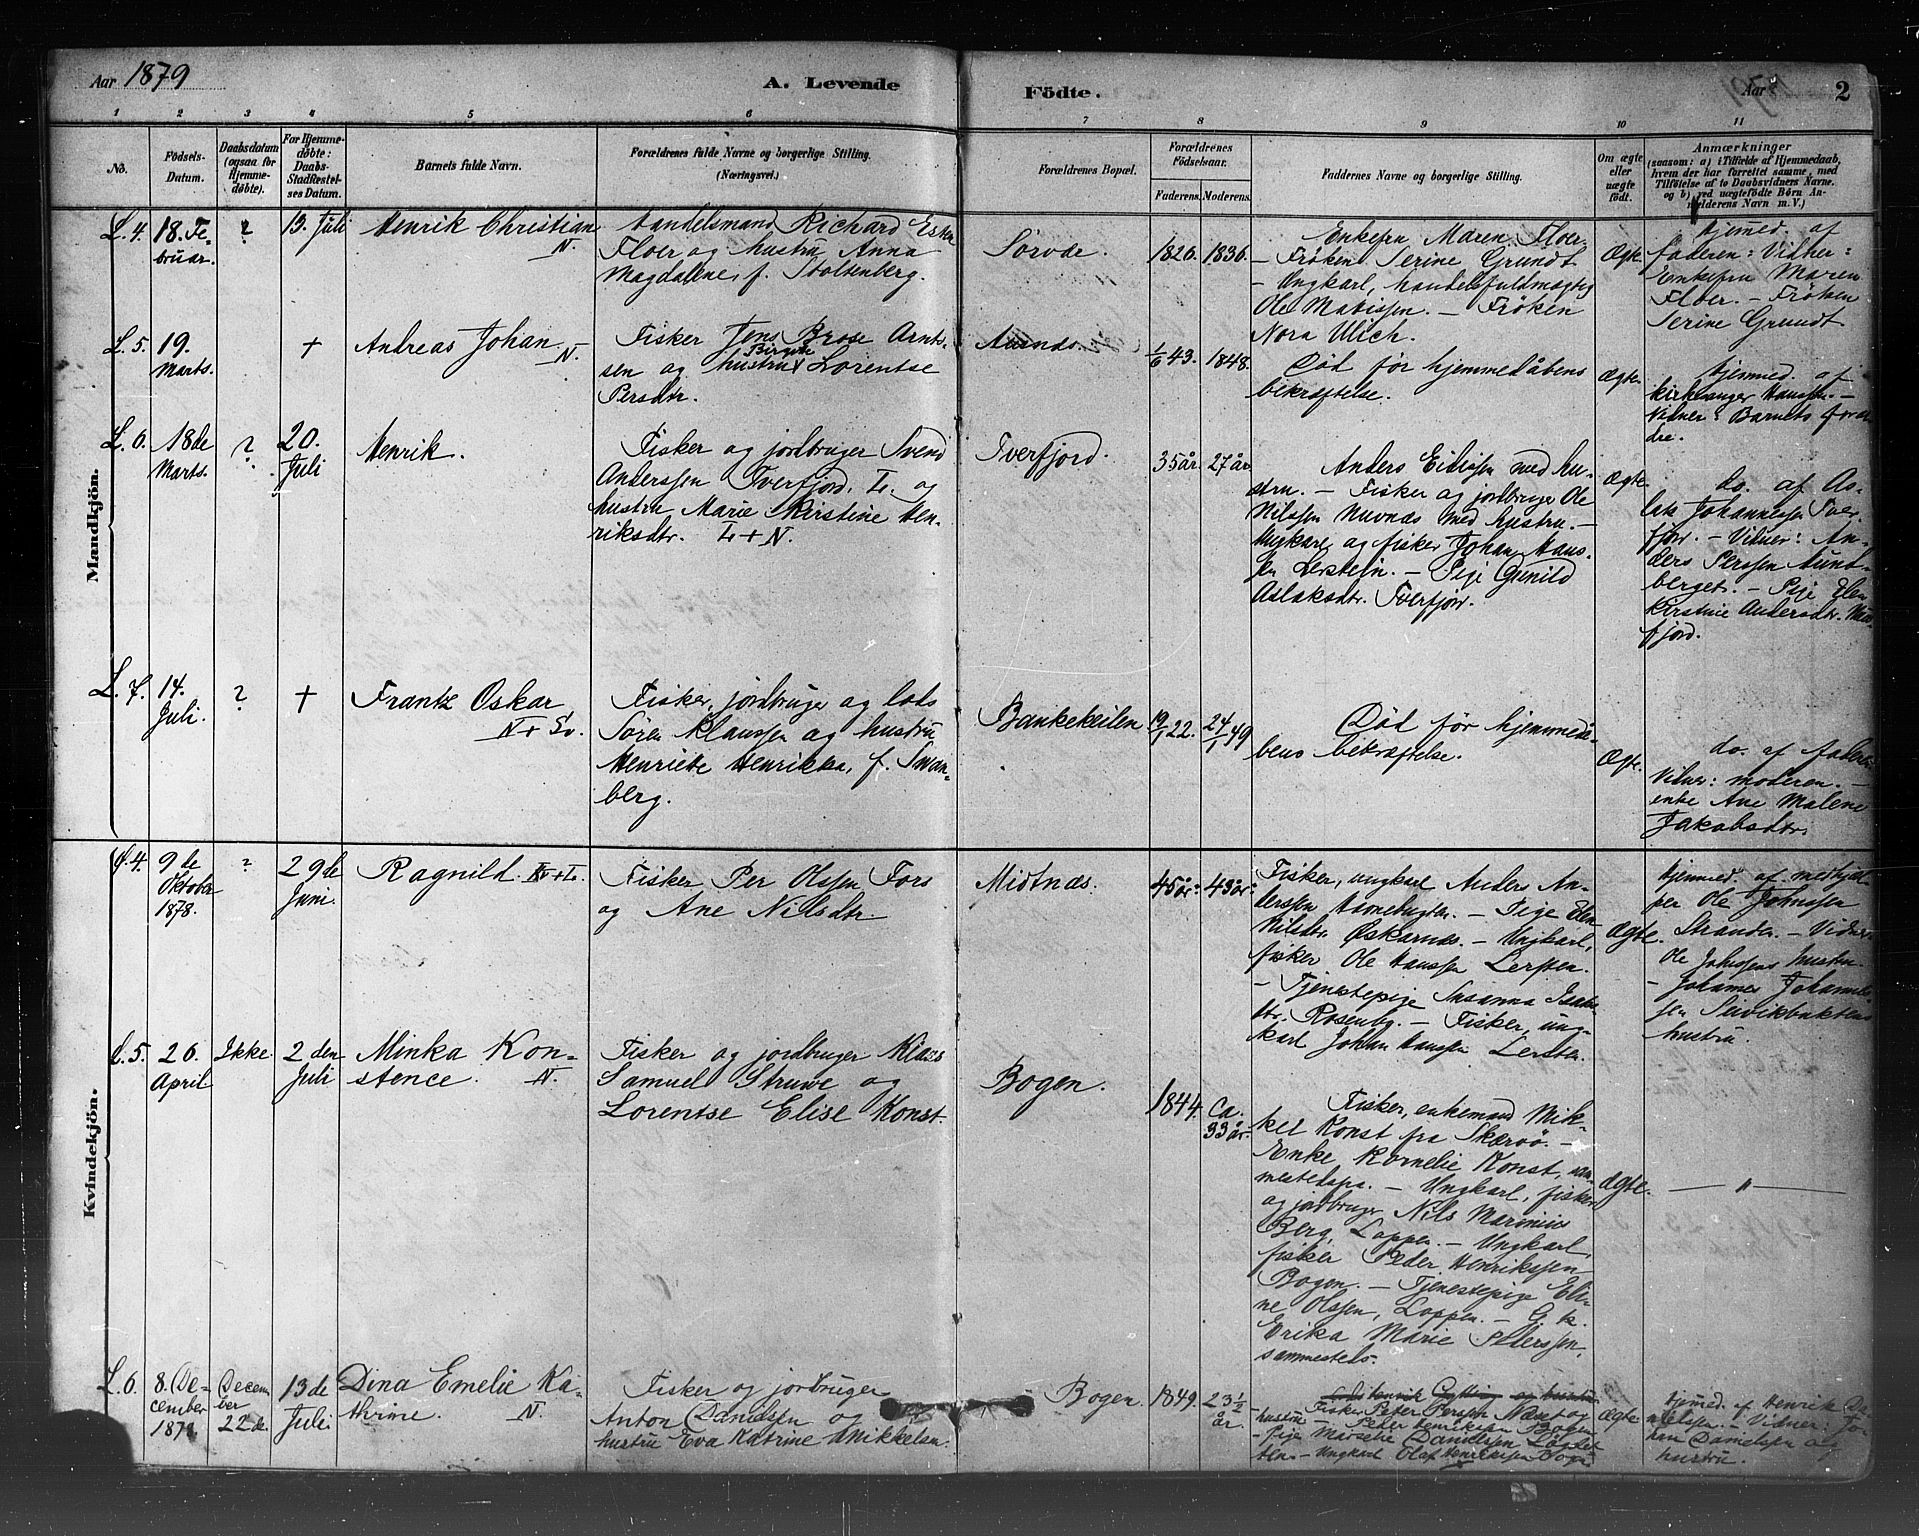 Aar 1879
A. Levende
Födte.
Aar
2
1 2 3 4 5 6 7 8 9 10 11
No.
Födsels-
Datum.
Daabsdatum
(ogsaa for
Hjemme-
döbte).
For Hjemme-
döbte:
Daabs-
Stadfæstel-
ses Datum.
Barnets fulde Navn.
Forældrenes fulde Navne og borgerlige Stilling.
(Næringsvei.)
Forældrenes Bopæl.
Forældrenes
Födselsaar.
Faderens. Moderens.
Faddernes Navne og borgerlige Stilling.
Om ægte
eller
uægte
födt.
Anmærkninger
(saasom: a) i Tilfælde af Hjemmedaab,
hvem der har forrettet samme, med
Tilföielse af to Daabsvidners Navne.
og b) ved uægtefödte Börn An-
melderens Navn m. V.)
Mandkjön.
L. 4.
18. Fe-
bruar.
?
13. Juli
Henrik Christian
N.
Handelsmand Richard Esker
Floer og hustru Anna
Magdalene, f. Stoltenberg.
Sörvde.
1826. 1836.
Enkefru Maren Floer.
– Fröken Serine Grundt
– Ungkarl, handelsfuldmægtig
Ole Mathissen. – Fröken
Nora Ulich.
Ægte.
Hjemmed. af
faderen: Vidner:
Enkefru Maren
Floer. – Fröken
Serine Grundt
L. 5.
19.
Marts.
+
Andreas Johan
N.
Fisker Jens Brose Arnts-
sen og hustru Birgitte Lorentse
Persdtr.
1/6 43. 1848.
Død før hjemmedåbens
bekræftelse.
Ægte.
Hjemmed af
kirkesanger Hanssen. –
Vidner: Barnets foræl-
dre.
L. 6.
18de
Marts.
?
20.
Juli
Henrik.
Fisker og jordbruger Svend
Anderssen Tverfjord, L. og
hustru Marie Kirstine Hen-
riksdtr. L + N.
Tverfjord.
35 år. 27 år
Anders Eilissen med hu-
stru. – Fisker og jordbruger Ole
Nilssen Nuvnæs med hustru. –
Ungkarl og fisker Johan Hans-
sen Lerstejn. – Pige Gunild
Aslaksdtr. Tverfjor.
Ægte.
do. af As-
lak Johannessen Tver-
fjor. – Vidner: An-
ders Perssen Aund-
berget. – Pige Elen
Kirstine Andersdtr.
fjord.
L. 7.
14.
Juli.
?
+
Frantz Oskar
N + Sv.
Fisker, jordbruger og lods
Sören Klaussen og hustru
Henriette Henrikka, f. Swan-
berg.
Bankekeilen
19/1 22. 24/1 49
Død før hjemmedå-
bens bekræftelse.
Ægte.
do. af faderen
Vidner: moderen. –
enke Ane Malene
Jakobsdtr.
Kvindekjön.
L. 4.
9de
Oktober
1878.
?
29de
Juni.
Ragnild. K + L.
Fisker Per Olssen Fors
og Ane Nilsdtr.
Midtnæs.
45 år: 43 år:
Fisker, ungkarl Anders An-
derssen Havnebugten. – Pige Elen
Nilsdtr. Øskarnæs. – Ungkarl,
fisker Ole Hanssen Lersten.
– Tjenestepige Susanna Isaks-
dtr. Rosenbg. – Fisker, ung-
karl Johan Hanssen Lersten.
Ægte.
Hjemmed. af medhjæl-
per Ole Johnssen
Strander. – Vidner:
Ole Johnsens hustru
– Johannes Johannes-
sen Seivikbuktens
hustru.
L. 5.
26.
April
Ikke
2den
Juli
Minka Kon-
stence. N.
Fisker og jordbruger Klaus
Samuel Struwe og
Lorentse Elise Konst.
Bogen.
1844. Ca.
33 år.
Fisker, enkemand Mik-
kel Konst fra Skærvö. –
Enke Kornelie Konst, sam-
mestedspa. – Ungkarl, fisker
og jordbruger Nils Marinius
Berg, Loppen. – Ungkarl,
fisker Peder Henrikssen
Bogen. – Tjenestepige Eli-
ne Olssen, Loppen. – G. k.
Erika Marie Pederssen,
sammesteds.
Ægte.
— " —
L. 6.
8. De-
cember
1878.
Decem-
ber
22de.
13de
Juli
Dina Emelie Ka-
thrine. N.
Fisker og jordbruger
Anton Danielsen og
hustru Eva Katrine Mikkelsen.
Bogen.
1849. 23 1/2
år.
Fisker Peter Perssen Næset og
hustru – Peter Henriksen Bogen
– Pige Marselie Danielsen Lögtet
ten – Ungkarl Olaf Henriksen Boge
Ægte
Hjemmed. af Henrik Da-
nielssen. – Vidner: Jo-
han Danielsen og
hustru.